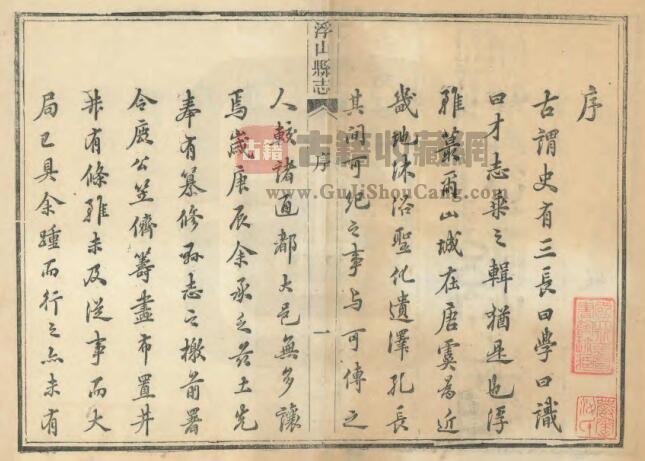 序
古謂史有三長曰學曰識
曰才志乘之輯猶是也浮
雖蕞爾山城在唐虞為近
畿地沐浴聖化遺澤孔長
其間可紀之事与可傳之
浮山縣志
序
一
人較諸通都大邑無多讓
焉歲庚辰余承乏茲土先
奉有纂修志之檄前署
令鹿公笠儕籌畫布置井
井有條雖未及從事而大
局已具余踵而行之亦未有
古籍
古籍收藏網
www.GuJiShouCang.Com